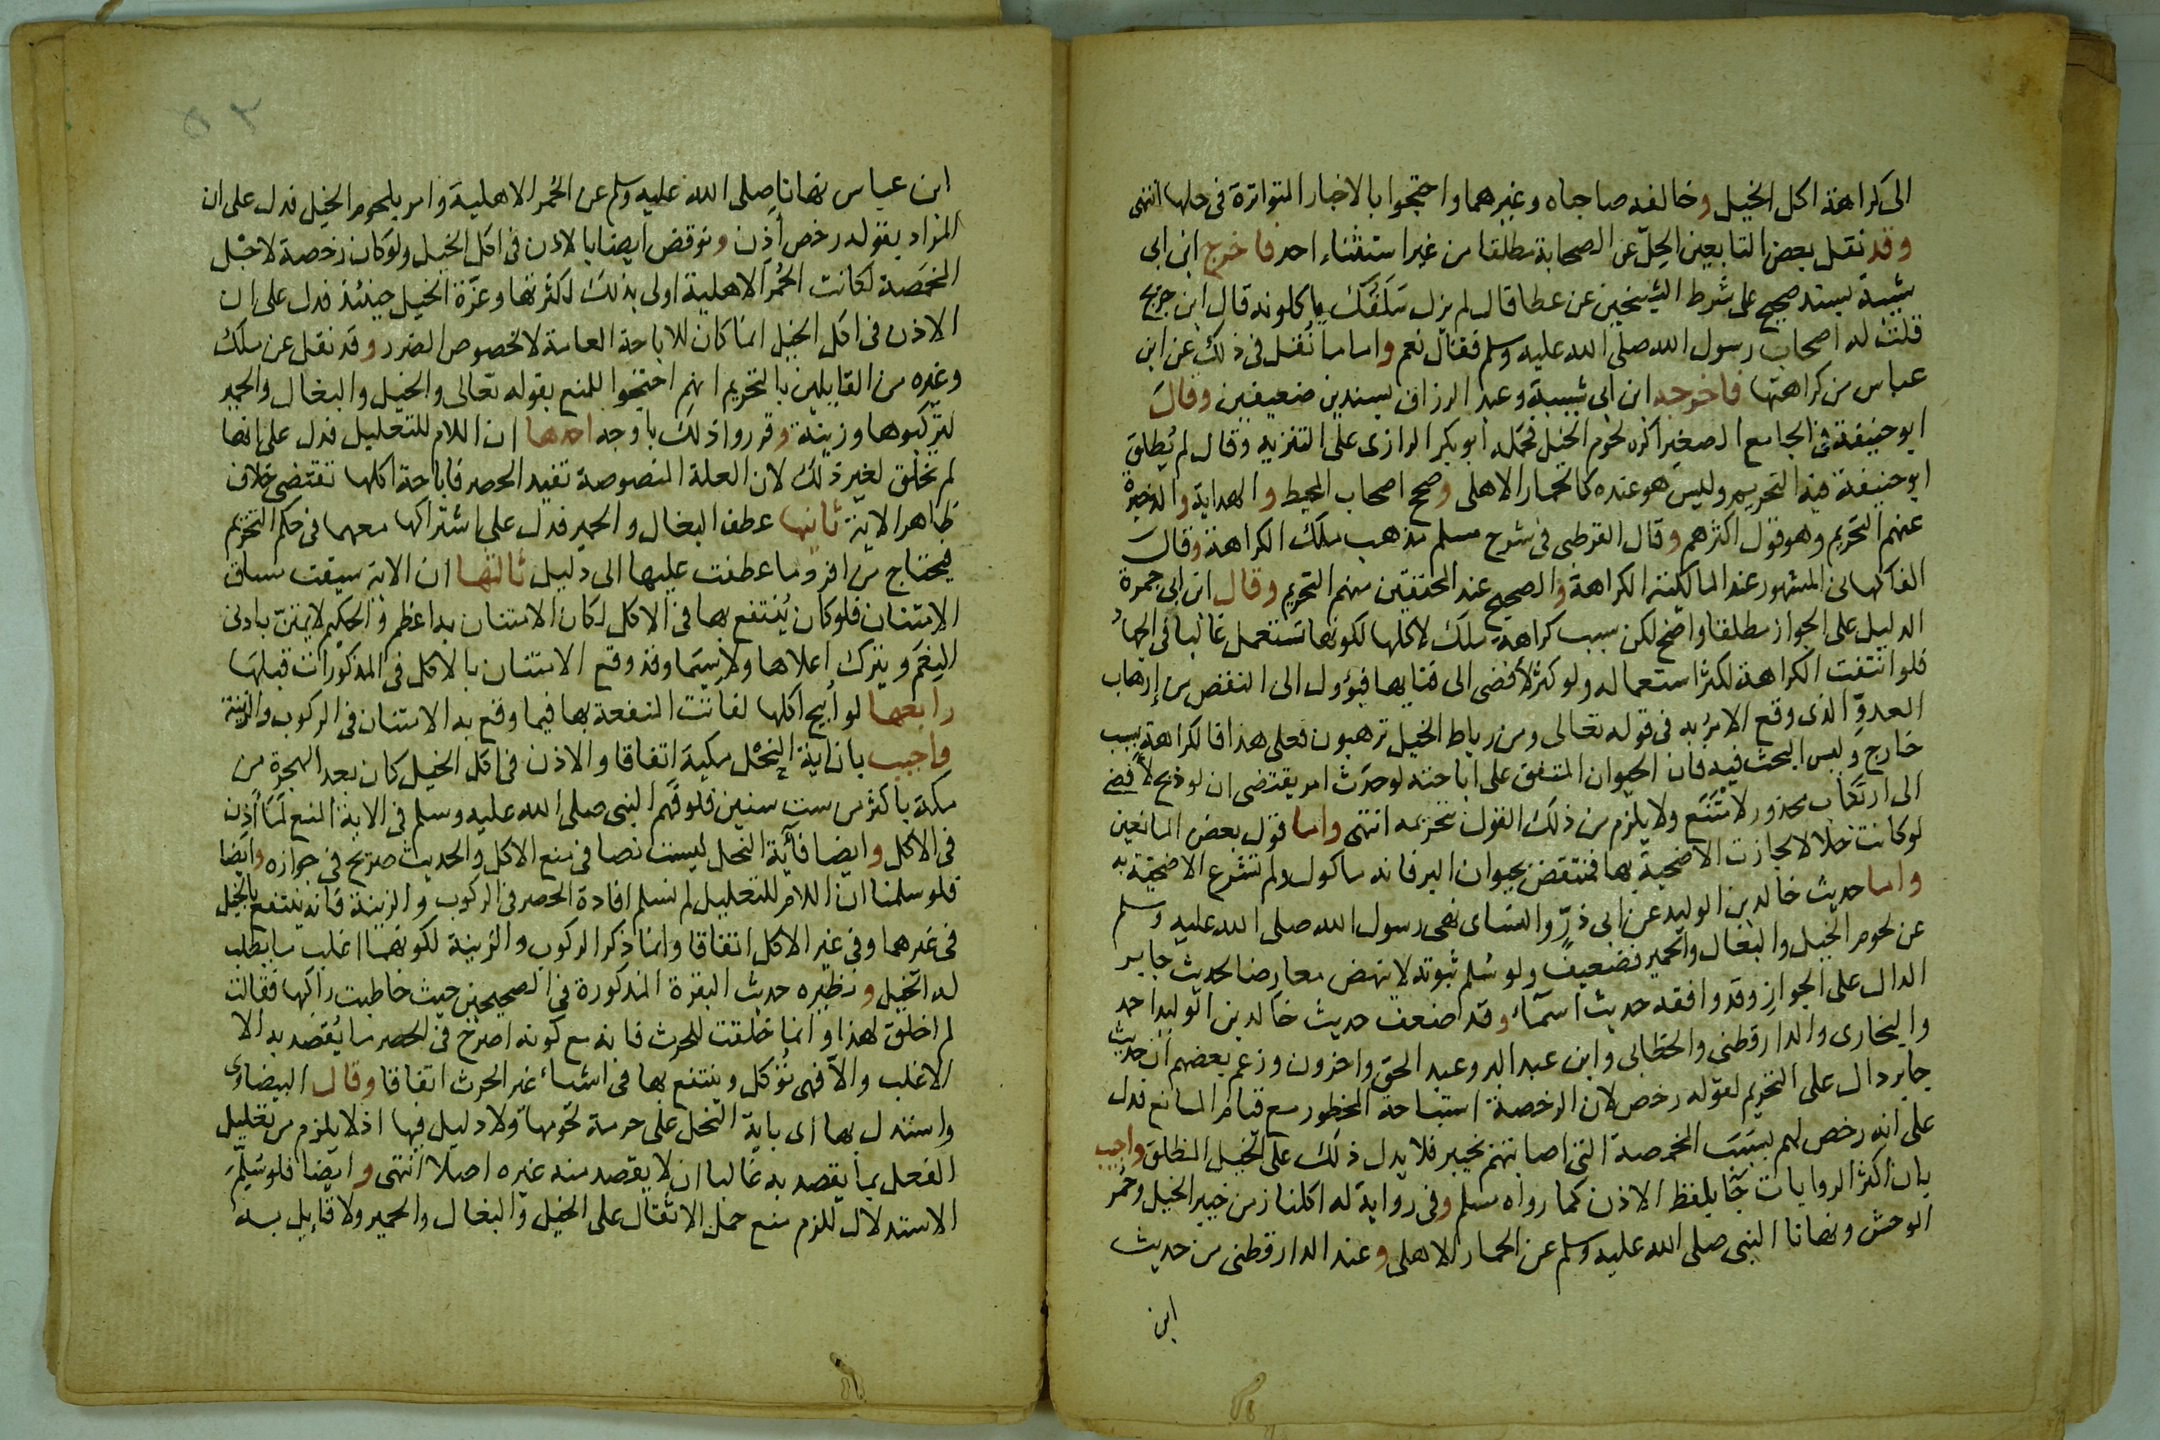 الى كراهة اكل الخيل وخالفه صاحباه وغيرهما واحتجوا بالاخبار المتواترة في حلها انتهى
وقد نقل بعض التابعين الحِلّ عن الصحابة مطلقا من غير استثناء احد فاخرج ابن ابى
شيبة بسند صحيح على شرط الشيخين عن عطا قال لم يزل سَلَفُكَ ياكلونه قال ابن جريج
قلتُ له اصحاب رسول الله صلى الله عليه وسلم فقال نعم واما ما نُقل في ذلك عن ابن
عباس من كراهتها فاخرجه ابن ابى شيبة وعبد الرزاق بسندين ضعيفين وقال
ابو حنيفة في الجامع الصغير اكره لحوم الخيل فحمله ابو بكر الرازى على التنزيه وقال لم يُطلق
ابو حنيفة فيه التحريم وليس هو عنده كالحمار الاهلى وصحح اصحاب المحيط والهداية والذخيرة
عنهم التحريم وهو قول اكثرهم وقال القرطبى فى شرح مسلم مذهب ملك الكراهة وقال
الفاكهانى المشهور عند المالكية الكراهة والصحيح عند المحققين منهم التحريم وقال ابن ابى جمرة
الدليل على الجواز مطلقا واضح لكن سبب كراهة ملك لاكلها لكونها تستعمل غالبا فى الجهاد
فلو انتفت الكراهة لكثر استعماله ولو كثر لأفضى الى فنايها فيؤول الى النقص من إرهاب
العدوّ الذى وقع الامرُ به فى قوله تعالى ومن رباط الخيل ترهبون فعلى هذا فالكراهة لسبب
خارج وليس البحث فيه فان الحيوان المتفق على اباحته لو حدث امر يقتضى ان لو ذبح لافضى
الى ارتكاب محذور لامتنع ولا يلزم من ذلك القول بتحريمه انتهى واما قول بعض المانعين
لو كانت حلالا لجازت الاضحية بها فمنتقض بحيوان البر فانه ماكول ولم تشرع الاضحية به
واما حديث خالد بن الوليد عن ابى ذرّ والنساى نهى رسول الله صلى الله عليه وسلم
عن لحوم الخيل والبغال والحمير فضعيف ولو سُلم ثبوته لا ينهض معارضا لحديث جابر
الدال على الجواز وقد وافقه حديث اسماء وقد اضعف حديث خالد بن الوليد احمد
والبخارى والدارقطنى والخطابى وابن عبد البر وعبد الحق واخرون وزعم بعضهم ان حديث
جابر دال على التحريم لقوله رخص لان الرخصة استباحة المحظور مع قيام المانع فدل
على انه رخص لهم بسبب المخمصة التى اصابتهم بخيبر فلا يدل ذلك على الحِل المطلق واجيب
بان اكثر الروايات جا بلفظ الاذن كما رواه مسلم وفى رواية له اكلنا زمن خيبر الخيل وحُمر
الوحش ونهانا النبى صلى الله عليه وسلم عن الحمار الاهلى وعند الدارقطنى من حديث
ابن
٥٢
ابن عباس نهانا صلى الله عليه وسلم عن الحُمر الاهلية وامر بلحوم الخيل فدل على ان
المراد بقوله رخص أذِن ونوقض ايضا بالاذن فى اكل الخيل ولو كان رخصة لاجل
المخمَصة لكانت الحُمر الاهلية اولى بذلك لكثرتها وعزّة الخيل حينئذ فدل على ان
الاذن فى اكل الخيل انما كان للاباحة العامة لا لخصوص الضرر وقد نقل عن ملك
وغيره من القايلين بالتحريم انهم احتجوا للمنع بقوله تعالى والخيل والبغال والحمير
لتركبوها وزينة وقرروا ذلك باوجه احدها ان اللام للتعليل فدل على انها
لم تخلق لغير ذلك لان العلة المنصوصة تفيد الحصر فاباحة اكلها تقتضى خلاف
ظاهر الاية ثانيها عطف البغال والحمير فدل على اشتراكها معهما فى حكم التحريم
فيحتاج من افرد ما عطفت عليها الى دليل ثالثها ان الاية سيقت مساق
الامتنان فلو كان يُنتفع بها فى الاكل لكان الامتنان به اعظم والحكيم لا يمتنّ بادنى
النِعَم ويترك اعلاها ولا سيّما وقد وقع الامتنان بالاكل فى المذكورات قبلها
رابعها لو اُبيح اكلها لفاتت المنفعة بها فيما وقع به الامتنان فى الركوب والزينة
واجيب بان اية النحل مكية اتفاقا والاذن فى اكل الخيل كان بعد الهجرة من
مكة باكثر من ست سنين فلو فَهم النبى صلى الله عليه وسلم فى الاية المنع لَمَا أذن
فى الاكل وايضا فآية النحل ليست نصا فى منع الاكل والحديث صريح فى جوازه وايضا
فلو سلمنا ان اللام للتعليل لم نسلم افادة الحصر فى الركوب والزينة فانه ينتفع بالخيل
فى غيرهما وفى غير الاكل اتفاقا وانما ذكر الركوب والزينة لكونهما اغلب ما يطلب
له الخيل ونظيره حديث البقرة المذكورة فى الصحيحين حيث خاطبت راكبها فقالت
لم اخلق لهذا وانما خلقت للحرث فانه مع كونه اصرح فى الحصر ما يُقصد به الا
الاغلب والّا فهى تُؤكل وينتفع بها فى اشياء غير الحرث اتفاقا وقال البيضاوى
واستدل بها اى باية النحل على حرمة لحومها ولا دليل فيها اذ لا يلزم من تعليل
الفعل بما يقصد به غالبا ان لا يقصد منه غيره اصلا انتهى وايضا فلو سُلّم
الاستدلال للزم منع حمل الاثقال على الخيل والبغال والحمير ولا قايل به